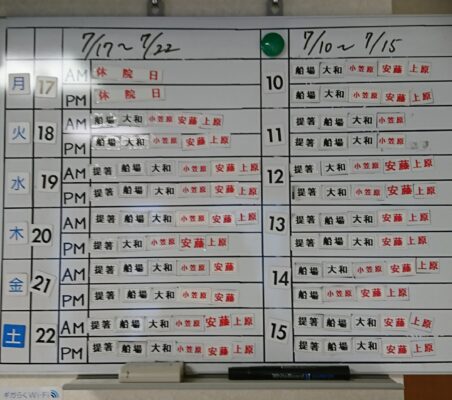 7/17～7/22
7/10～7/15
月 17 AM 休 院 日
PM 休 院 日
火 18 AM 船場 大和 小笠原 安藤 上原
PM 提箸 船場 大和 小笠原 安藤 上原
水 19 AM 提箸 船場 大和 小笠原 安藤 上原
PM 提箸 船場 大和 小笠原 安藤 上原
木 20 AM 提箸 船場 大和 小笠原 安藤 上原
PM 提箸 大和 小笠原 安藤 上原
金 21 AM 提箸 船場 大和 小笠原 安藤
PM 提箸 船場 大和 小笠原 安藤
土 22 AM 提箸 船場 大和 小笠原 安藤 上原
PM 提箸 船場 大和 小笠原 安藤 上原
10 船場 大和 小笠原 安藤 上原
船場 大和 小笠原 安藤 上原
11 提箸 船場 大和 小笠原
提箸 船場 大和 小笠原
12 提箸 船場 大和 小笠原 安藤 上原
提箸 船場 大和 小笠原 安藤 上原
13 提箸 船場 大和 小笠原 安藤 上原
提箸 船場 大和 小笠原 安藤 上原
14 船場 大和 小笠原 安藤 上原
船場 小笠原 安藤 上原
15 提箸 船場 大和 小笠原 安藤 上原
提箸 船場 大和 小笠原 安藤 上原
ギガらくWi-Fi